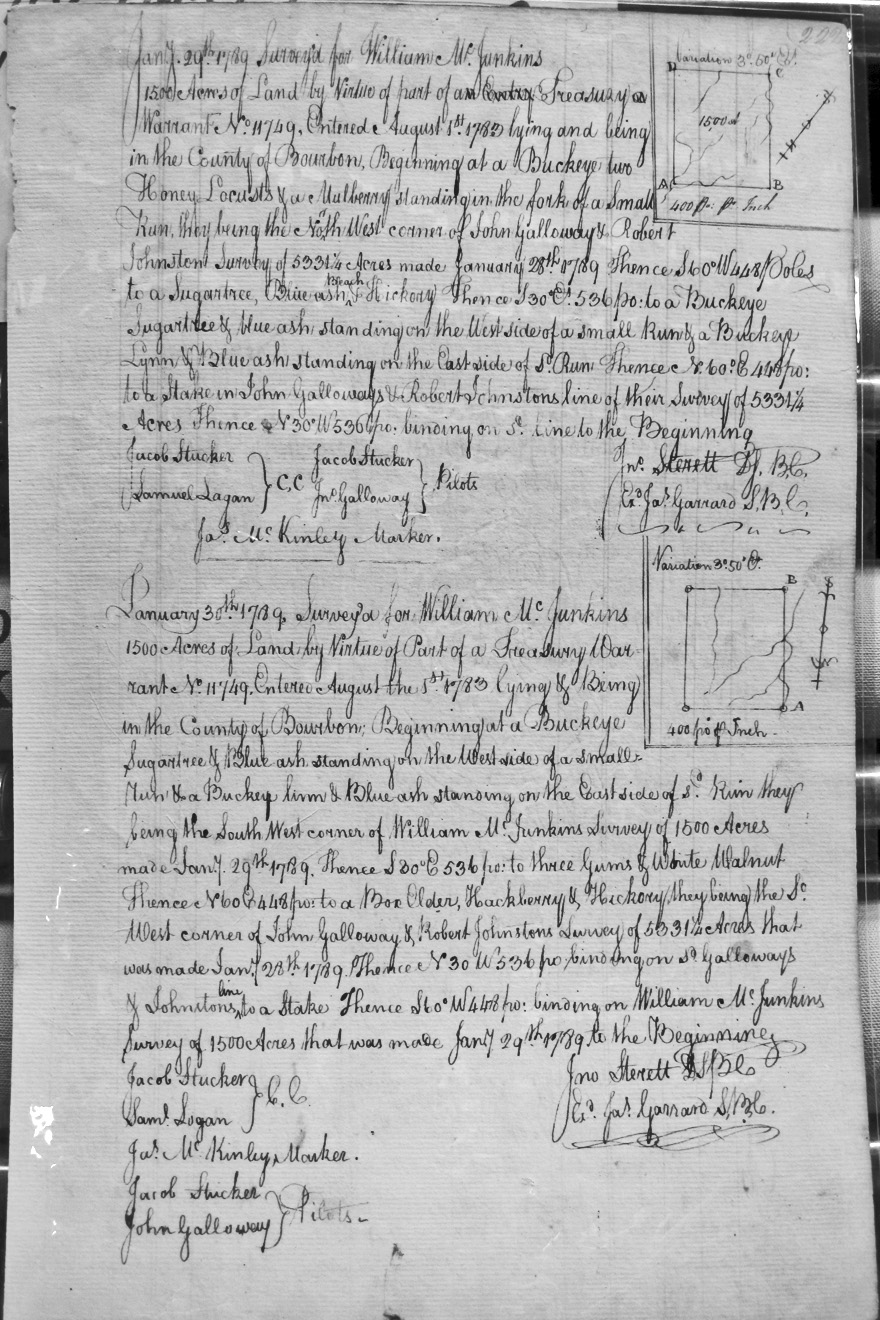 222
Jany. 29th 1789 Survey'd for William Mc. Junkins
1500 Acres of Land by Virtue of part of an Entry Treasury
Warrant No. 11749, Entered August 1st. 1783 lying and being
in the County of Bourbon, Beginning at a Buckeye two
Honey Locusts & a Mulberry standing in the fork of a Small
Run, they being the North West corner of John Galloway & Robert
Johnston Survey of 5331¼ Acres made January 28th 1789 Thence S60°W 448 Poles
to a Sugartree, Blue ash, Beach & Hickory Thence S30°E. 536 po: to a Buckeye
Sugartree & blue ash standing on the West side of a small Run & a Buckeye
Lynn & Blue ash standing on the East side of Sd. Run Thence N. 60° E 448 po:
to a Stake in John Galloways & Robert Johnstons line of their Survey of 5331¼
Acres Thence N 30° W 536 po: binding on Sd. line to the Beginning
Jacob Stucker
Samuel Lagan } C,C
Jacob Stucker
Jno Galloway } Pilots
Jas. Mc. Kinley Marker.
Jno. Sterett DS, B.C,
Exd. Jas. Garrard S, B. C.
Variation 3°. 50' E.
D C
1500 A
A B
400 po. pr. Inch
January 30th. 1789, Survey'd for William Mc Junkins
1500 Acres of Land by Virtue of Part of a Treasury War-
rant No. 11749, Entered August the 1st. 1783 lying & Being
in the County of Bourbon; Beginning at a Buckeye
Sugartree & Blue ash standing on the West side of a small=
run & a Buckeye linn & Blue ash standing on the East side of sd. Run they
being the South West corner of William Mc. Junkins Survey of 1500 Acres
made Jany. 29th 1789. Thence S 30° E 536 po: to three Gums & White Walnut
Thence N 60 E 448 po: to a Box Elder, Hackberry & Hickory they being the So.
West corner of John Galloway & Robert Johnstons Survey of 5331¼ Acres that
was made Jany. 28th 1789. Thence N 30 W 536 po binding on Sd Galloways
& Johnstons line to a Stake Thence S60° W 448 po: binding on William Mc. Junkins
Survey of 1500 Acres that was made Jany 29th 1789 to the Beginning
Jacob Stucker
Saml. Logan } C. C.
Jas. Mc Kinley, Marker.
Jacob Stucker
John Galloway } Pilots-
Jno Sterett DS BC
Exd. Jas. Garrard S, B.C.
Variation 3°. 50' E.
B
A
400 po pr Inch.